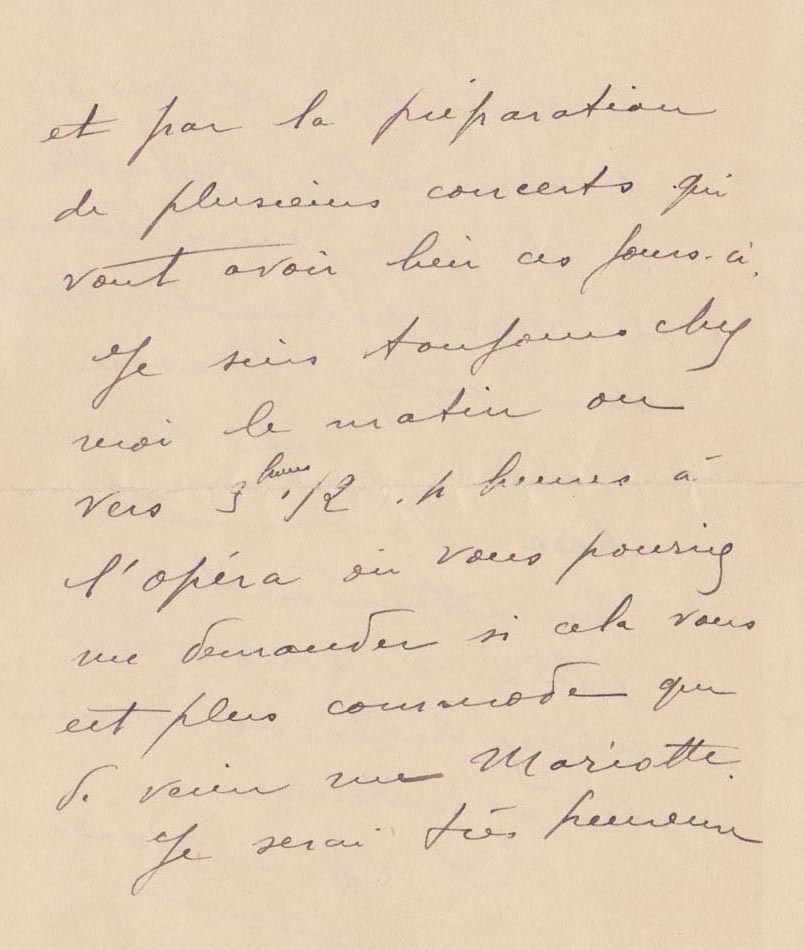 et par la préparation
de plusieurs concerts qui
vont avoir lieu ces jours-ci.
Je suis toujours chez
moi le matin ou
vers 3 heures 1/2 heures à
l'opéra où vous pourriez
me demander si cela vous
est plus commode que
de venir rue Mariotte.
Je serai très heureux